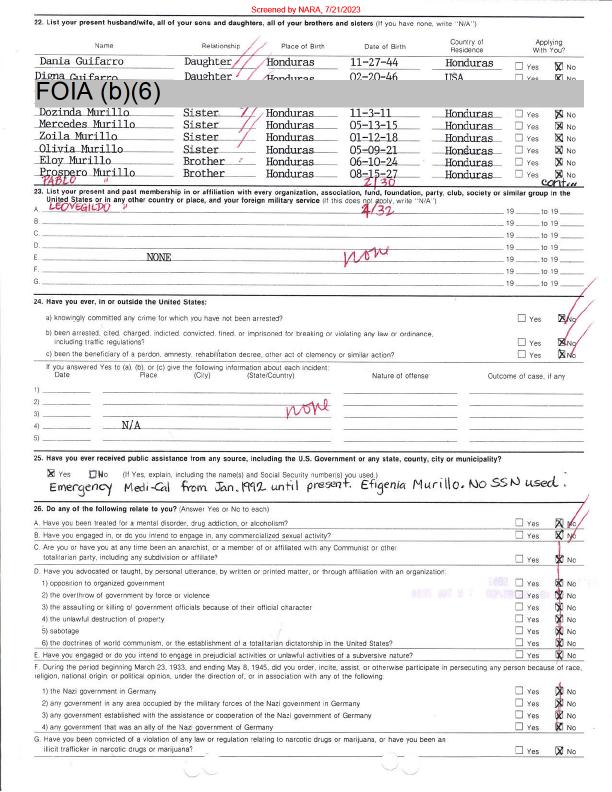 Screened by NARA, 7/21/2023
22. List your present husband/wife, all of your sons and daughters, all of your brothers and sisters (If you have none, write "N/A")
Name Relationship Place of Birth Date of Birth Country of Residence Applying With You?
Dania Guifarro Daughter Honduras 11-27-44 Honduras ☐ Yes ☒ No
Digna Guifarro Daughter Honduras 02-20-46 USA ☐ Yes ☒ No
FOIA (b)(6)
Dozinda Murillo Sister Honduras 11-3-11 Honduras ☐ Yes ☒ No
Mercedes Murillo Sister Honduras 05-13-15 Honduras ☐ Yes ☒ No
Zoila Murillo Sister Honduras 01-12-18 Honduras ☐ Yes ☒ No
Olivia Murillo Sister Honduras 05-09-21 Honduras ☐ Yes ☒ No
Eloy Murillo Brother Honduras 06-10-24 Honduras ☐ Yes ☒ No
Prospero Murillo Brother Honduras 08-15-27 Honduras ☐ Yes ☒ No
PABLO " 2/30 contin
23. List your present and past membership in or affiliation with every organization, association, fund, foundation, party, club, society or similar group in the
United States or in any other country or place, and your foreign military service (If this does not apply, write "N/A")
A. LEOVEGILDO " 4/32 19 to 19
B. 19 to 19
C. 19 to 19
D. 19 to 19
E. NONE none 19 to 19
F. 19 to 19
G. 19 to 19
24. Have you ever, in or outside the United States:
a) knowingly committed any crime for which you have not been arrested? ☐ Yes ☒ No
b) been arrested, cited, charged, indicted, convicted, fined, or imprisoned for breaking or violating any law or ordinance,
including traffic regulations? ☐ Yes ☒ No
c) been the beneficiary of a pardon, amnesty, rehabilitation decree, other act of clemency or similar action? ☐ Yes ☒ No
If you answered Yes to (a), (b), or (c) give the following information about each incident:
Date Place (City) (State/Country) Nature of offense Outcome of case, if any
1)
2)
3) none
4) N/A
5)
25. Have you ever received public assistance from any source, including the U.S. Government or any state, county, city or municipality?
☒ Yes ☐ No (If Yes, explain, including the name(s) and Social Security number(s) you used.)
Emergency Medi-Cal from Jan. 1992 until present. Efigenia Murillo. No SSN used.
26. Do any of the following relate to you? (Answer Yes or No to each)
A. Have you been treated for a mental disorder, drug addiction, or alcoholism? ☐ Yes ☒ No
B. Have you engaged in, or do you intend to engage in, any commercialized sexual activity? ☐ Yes ☒ No
C. Are you or have you at any time been an anarchist, or a member of or affiliated with any Communist or other
totalitarian party, including any subdivision or affiliate? ☐ Yes ☒ No
D. Have you advocated or taught, by personal utterance, by written or printed matter, or through affiliation with an organization:
1) opposition to organized government ☐ Yes ☒ No
2) the overthrow of government by force or violence ☐ Yes ☒ No
3) the assaulting or killing of government officials because of their official character ☐ Yes ☒ No
4) the unlawful destruction of property ☐ Yes ☒ No
5) sabotage ☐ Yes ☒ No
6) the doctrines of world communism, or the establishment of a totalitarian dictatorship in the United States? ☐ Yes ☒ No
E. Have you engaged or do you intend to engage in prejudicial activities or unlawful activities of a subversive nature? ☐ Yes ☒ No
F. During the period beginning March 23, 1933, and ending May 8, 1945, did you order, incite, assist, or otherwise participate in persecuting any person because of race,
religion, national origin, or political opinion, under the direction of, or in association with any of the following:
1) the Nazi government in Germany ☐ Yes ☒ No
2) any government in any area occupied by the military forces of the Nazi government in Germany ☐ Yes ☒ No
3) any government established with the assistance or cooperation of the Nazi government of Germany ☐ Yes ☒ No
4) any government that was an ally of the Nazi government of Germany ☐ Yes ☒ No
G. Have you been convicted of a violation of any law or regulation relating to narcotic drugs or marijuana, or have you been an
illicit trafficker in narcotic drugs or marijuana? ☐ Yes ☒ No